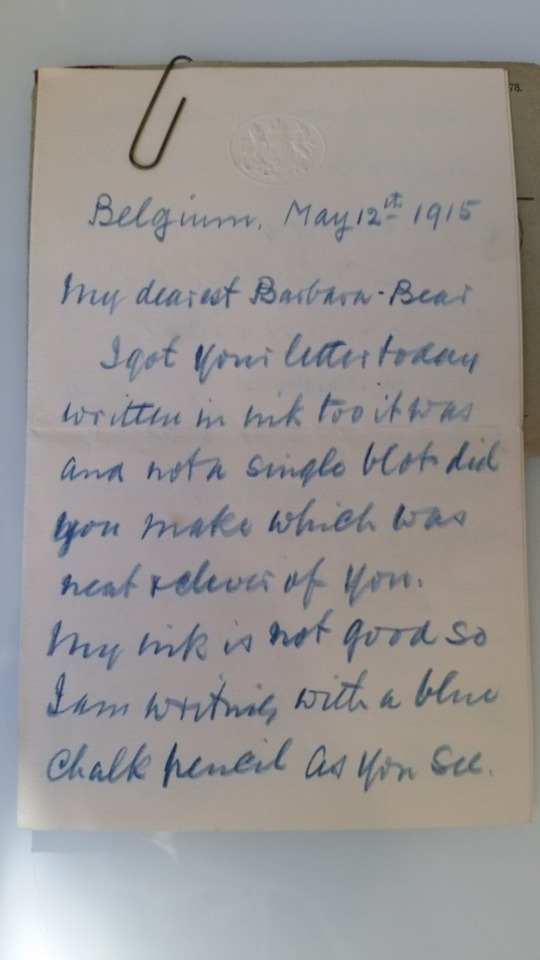 78.
Belgium. May 12th 1915
My dearest Barbara-Bear
I got your letter today
written in ink too it was
and not a single blot did
you make which was
neat & clever of you.
My ink is not good so
I am writing with a blue
chalk pencil as you see.